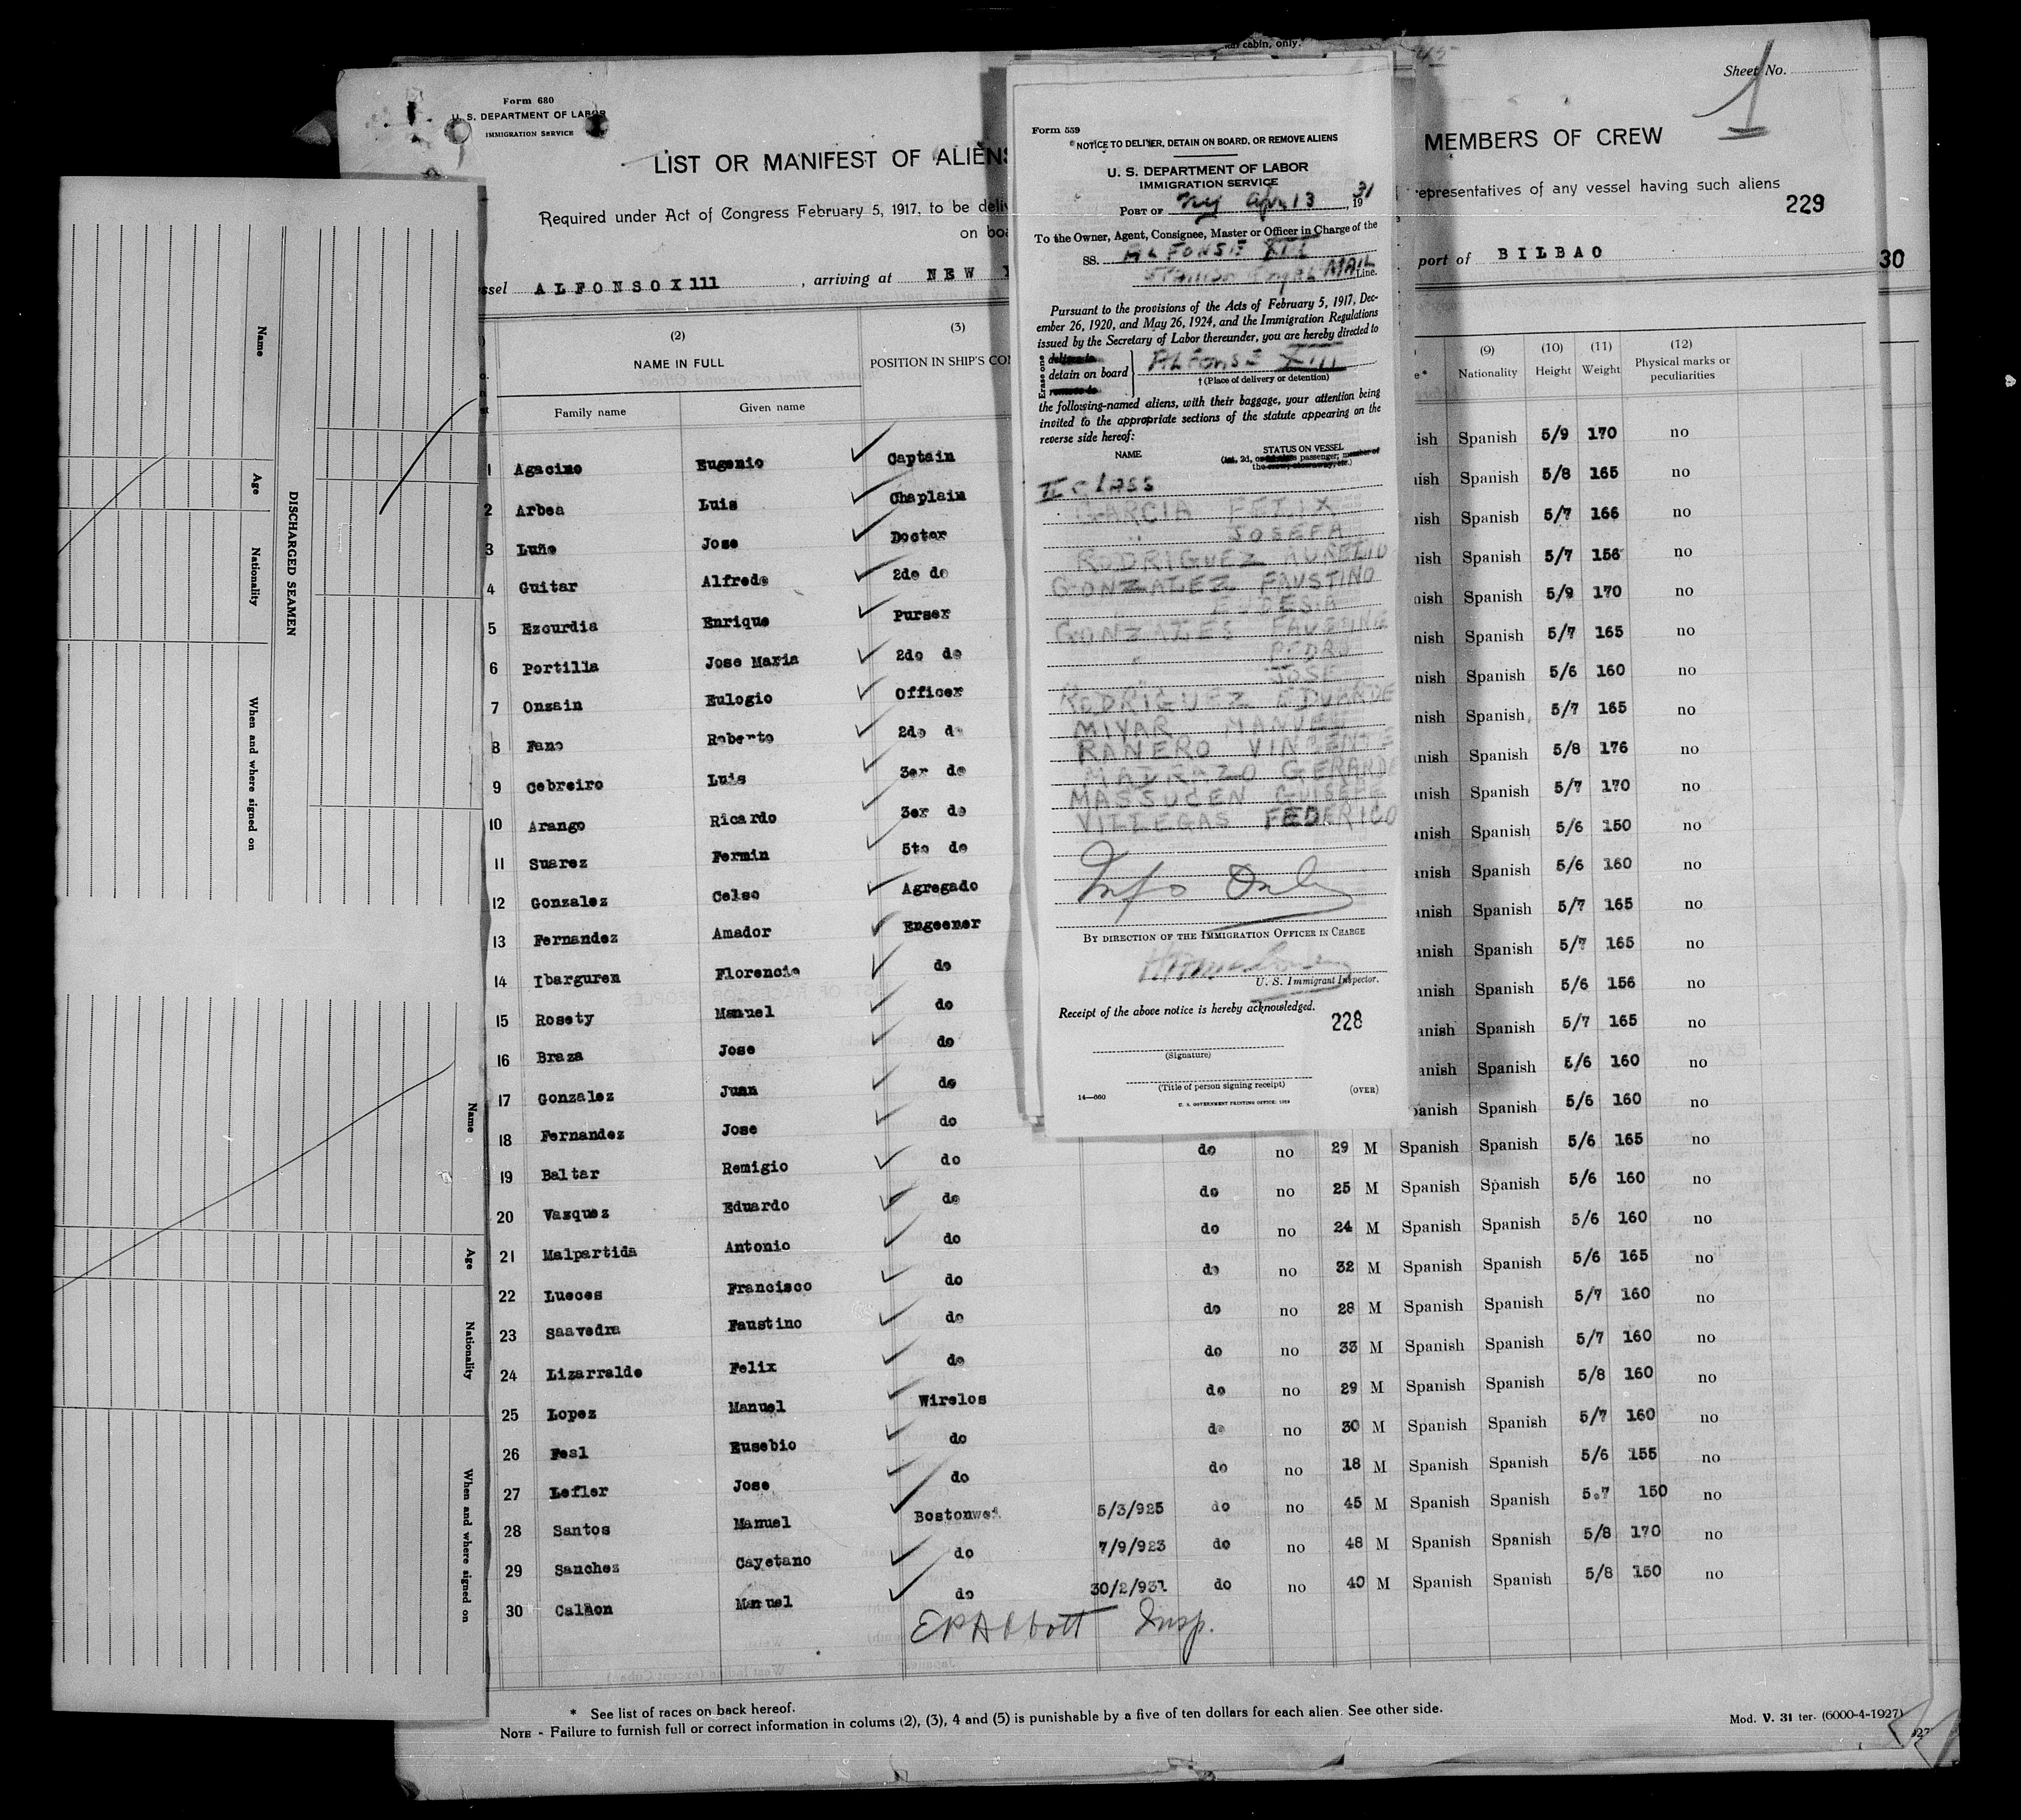 an cabin, only.
Form 680
U. S. DEPARTMENT OF LABOR
IMMIGRATION SERVICE
LIST OR MANIFEST OF ALIENS
Required under Act of Congress February 5, 1917, to be deli
on boa
ssel ALFONSO X111, arriving at NEW
(2)
(3)
NAME IN FULL
POSITION IN SHIP'S CO
Family name
Given name
1 Agacino Eugenio Captain
2 Arbea Luis Chaplain
3 Luño Jose Doctor
4 Guitar Alfredo 2do do
5 Ezcurdia Enrique Purser
6 Portilla Jose Maria 2do do
7 Onzain Eulogio Officer
8 Fano Roberto 2do do
9 Cebreiro Luis 3er do
10 Arango Ricardo 3er do
11 Suarez Fermin 5to do
12 Gonzalez Celso Agregado
13 Fernandez Amador Engeener
14 Ibarguren Florencio do
15 Rosety Manuel do
16 Braza Jose do
17 Gonzalez Juan do
18 Fernandez Jose do
19 Baltar Remigio do
20 Vazquez Eduardo do
21 Malpartida Antonio do
22 Lueces Francisco do
23 Saavedra Faustino do
24 Lizarralde Felix do
25 Lopez Manuel Wirelos
26 Fesl Eusebio do
27 Lefler Jose do
28 Santos Manuel Bostonwei
29 Sanchez Cayetano do
30 Calñon Manuel do
E P Abbott Insp.
* See list of races on back hereof.
NOTE - Failure to furnish full or correct information in colums (2), (3), 4 and (5) is punishable by a five of ten dollars for each alien. See other side.
Mod. V. 31 ter. (6000-4-1927)
Form 559
NOTICE TO DELIVER, DETAIN ON BOARD, OR REMOVE ALIENS
U. S. DEPARTMENT OF LABOR
IMMIGRATION SERVICE
PORT OF NY Apr. 13, 1931
To the Owner, Agent, Consignee, Master or Officer in Charge of the
SS. ALFONSE XIII
Spanish Royal MAIL Line.
Pursuant to the provisions of the Acts of February 5, 1917, Dec-
ember 26, 1920, and May 26, 1924, and the Immigration Regulations
issued by the Secretary of Labor thereunder, you are hereby directed to
Erase one
deliver to
detain on board
remove to
ALFONSE XIII
† (Place of delivery or detention)
the following-named aliens, with their baggage, your attention being
invited to the appropriate sections of the statute appearing on the
reverse side hereof:
NAME
STATUS ON VESSEL
(1st, 2d, or 3d class passenger, member of
the crew, stowaway, etc.)
II CLASS
GARCIA FELIX
" JOSEFA
RODRIGUEZ AURELIO
GONZALEZ FAUSTINO
EUDESIA
GONZALES FAUSTINE
" PEDRO
JOSE
RODRIGUEZ EDUARDE
MIYAR MANUEL
RANERO VINCENTE
MADRAZO GERARDE
MASSUCEN GUISEPE
VILLEGAS FEDERICO
Info Only
BY DIRECTION OF THE IMMIGRATION OFFICER IN CHARGE
U. S. Immigrant Inspector.
Receipt of the above notice is hereby acknowledged.
228
(Signature)
(Title of person signing receipt)
(OVER)
14—660
U. S. GOVERNMENT PRINTING OFFICE: 1929
Sheet No.
1
MEMBERS OF CREW
representatives of any vessel having such aliens
229
port of BILBAO
30
(9) (10) (11) (12)
Nationality Height Weight Physical marks or
peculiarities
ish Spanish 5/9 170 no
nish Spanish 5/8 165 no
nish Spanish 5/7 166 no
nish Spanish 5/7 156 no
nish Spanish 5/9 170 no
nish Spanish 5/7 165 no
nish Spanish 5/6 160 no
nish Spanish, 5/7 165 no
anish Spanish 5/8 176 no
anish Spanish 5/7 170 no
anish Spanish 5/6 150 no
anish Spanish 5/6 160 no
anish Spanish 5/7 165 no
anish Spanish 5/7 165 no
anish Spanish 5/6 156 no
anish Spanish 5/7 165 no
anish Spanish 5/6 160 no
panish Spanish 5/6 160 no
do no 29 M Spanish Spanish 5/6 165 no
do no 25 M Spanish Spanish 5/6 160 no
do no 24 M Spanish Spanish 5/6 160 no
do no 32 M Spanish Spanish 5/6 165 no
do no 28 M Spanish Spanish 5/7 160 no
do no 33 M Spanish Spanish 5/7 160 no
do no 29 M Spanish Spanish 5/8 160 no
do no 30 M Spanish Spanish 5/7 160 no
do no 18 M Spanish Spanish 5/6 155 no
5/3/925 do no 45 M Spanish Spanish 5.7 150 no
7/9/923 do no 48 M Spanish Spanish 5/8 170 no
30/2/931 do no 40 M Spanish Spanish 5/8 150 no
DISCHARGED SEAMEN
Name
Age
Nationality
When and where signed on
Name
Age
Nationality
When and where signed on